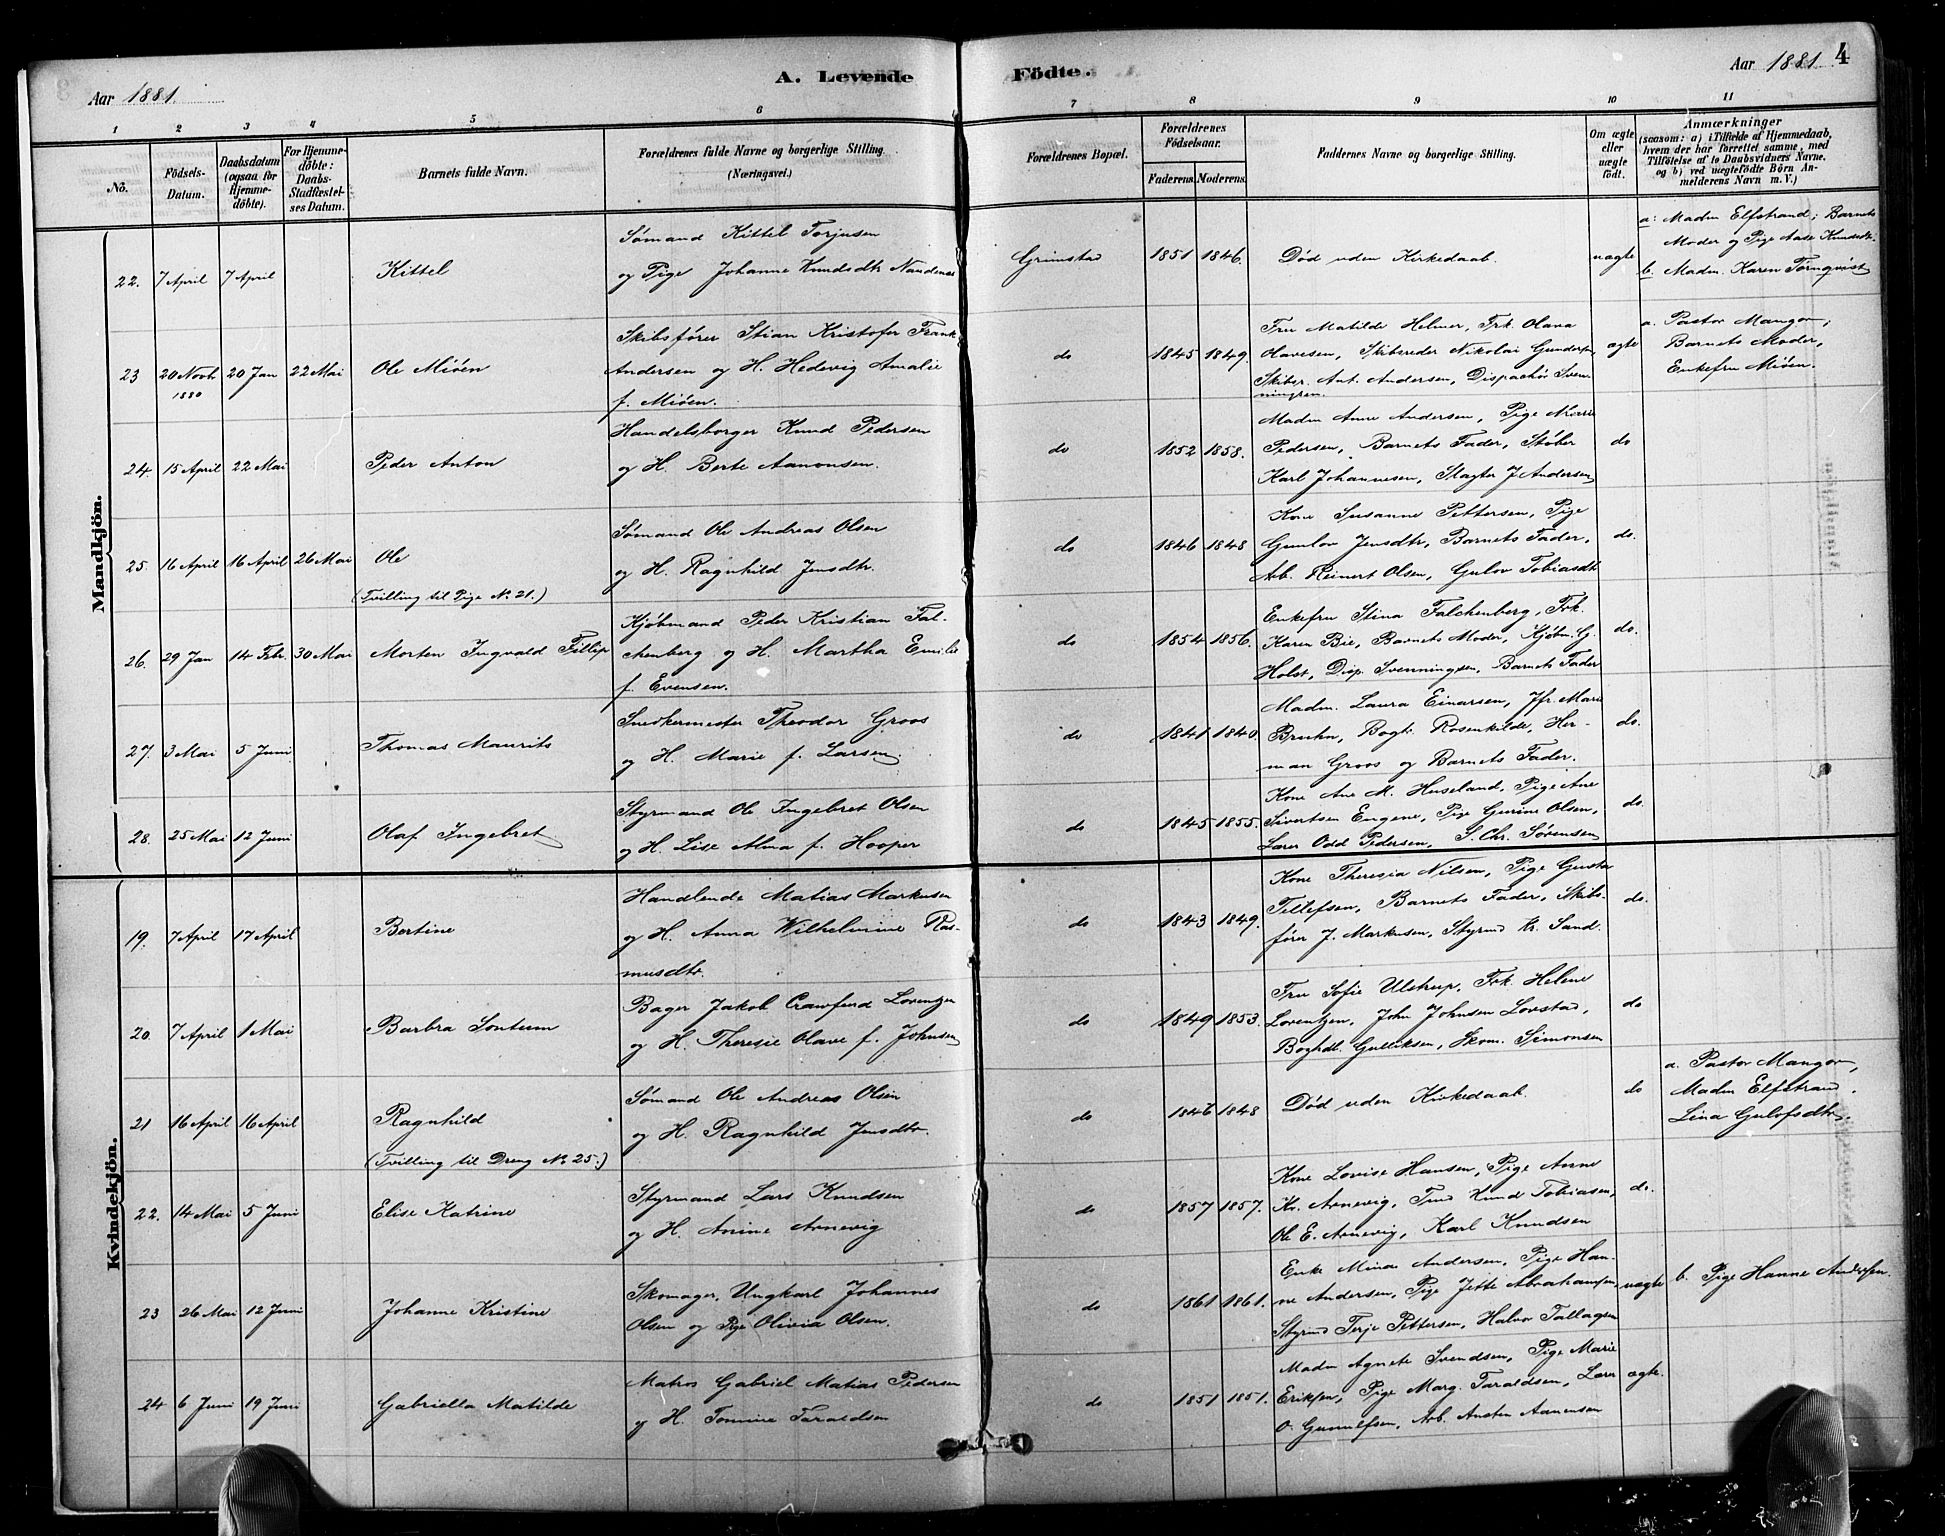 Aar 1881.
A. Levende Födte.
Aar 1881.
4
1 2 3 4 5 6 7 8 9 10 11
No.
Födsels-Datum.
Daabsdatum (ogsaa for Hjemme-döbte).
For Hjemme-döbte: Daabs-Stadfæstel-ses Datum.
Barnets fulde Navn.
Forældrenes fulde Navne og borgerlige Stilling (Næringsvei.)
Forældrenes Bopæl.
Forældrenes Födselsaar.
Faderens. Moderens.
Faddernes Navne og borgerlige Stilling.
Om ægte eller uægte födt.
Anmærkninger
(saasom: a) i Tilfælde af Hjemmedaab,
hvem der har forrettet samme, med
Tilföielse af to Daabsvidners Navne.
og b) ved uægtefödte Börn An-
melderens Navn m. V.)
Mandkjön.
22. 7 April 7 April Kittel
Sømand Kittel Torjusen
og Pige Johanne Knudsdtr Nandenes
Grimstad 1851 1846.
Død uden Kirkedaab.
uægte
a: Madm Elfstrand; Barnets
Moder og Pige Aase Knudsdtr.
b. Madm. Karen Törnqvist
23 20 Novb. 1880 20 Jan 22 Mai Ole Miöen
Skibsfører Stian Kristofer Frank
Andersen og H. Hedevig Amalie
f. Miöen.
do 1845 1849.
Fru Matilde Helmer, Frk. Olava
Olavesen, Skibsreder Nikolai Gundersen,
Skibsr. Ant. Andersen, Dispachör Sven-
ningsen.
ægte
a. Pastor Mangor,
Barnets Moder,
Enkefru Miöen.
24. 15 April 22 Mai Peder Anton
Handelsborger Knud Pedersen
og H. Berte Aamonsen.
do 1852 1858.
Madm Anne Andersen, Pige Marie
Pedersen, Barnets Fader, Støber
Karl Johannesen, Slagter J Andersen
do
25. 16 April 16 April 26 Mai Ole
(Tvilling til Pige No. 21.)
Sømand Ole Andreas Olsen
og H. Ragnhild Jensdtr.
do 1846 1848
Kone Susanne Pettersen, Pige
Gunlov Jensdtr, Barnets Fader,
Arb. Reinert Olsen, Gulov Tobiasdtr
do.
26. 29 Jan 14 Febr. 30 Mai Morten Ingvald Fillip
Kjøbmand Peder Kristian Fal-
chenberg og H. Martha Emilie
f. Evensen.
do 1854 1856.
Enkefru Stina Falchenberg, Frk.
Karen Bie, Barnets Moder, Kjøbm. G.
Holst, Disp. Svenningsen, Barnets Fader
do.
27. 3 Mai 5 Juni Thomas Maurits
Snedkermester Theodor Groos
og H. Marie f. Larsen.
do 1841 1840.
Madm. Laura Einarsen, Jfr. Marie
Bruhn, Bogh. Rosenkilde, Her-
man Groos og Barnets Fader.
do.
28. 25 Mai 12 Juni Olaf Ingebret
Styrmand Ole Ingebret Olsen
og H. Lise Alma f. Hooper
do 1845 1855.
Kone Ane M. Huseland, Pige Ane
Sivertsen Eugene, Pige Gurine Olsen,
Lærer Odd Pedersen, S. Chr. Sörensen
do.
Kvindekjön.
19. 7 April 17 April Bertine
Handlende Matias Markusen
og H. Anna Wilhelmine Ras-
musdtr.
do 1843 1849.
Kone Theresia Nilsen, Pige Gusta
Tellefsen, Barnets Fader, Skibs-
fører J. Markusen, Styrmd Kr. Sand.
do.
20. 7 April 1 Mai Barbra Sontum
Bager Jakob Crawfurd Lorentzen
og H. Theresie Olave f. Johnsen
do 1849 1853.
Fru Sofie Ulstrup, Frk. Helene
Lorentzen, John Johnsen Lovstad,
Boghdl. Gulliksen, Skom. Simonsen
do
21 16 April 16 April Ragnhild
(Tvilling til Dreng No. 25.)
Sømand Ole Andreas Olsen
og H. Ragnhild Jensdtr.
do 1846 1848
Død uden Kirkedaab.
do
a. Pastor Mangor,
Madm Elfstrand,
Lina Gulofsdtr.
22. 14 Mai 5 Juni Elise Katrine
Styrmand Lars Knudsen
og H. Anine Arnevig
do 1857 1857.
Kone Lovise Hansen, Pige Anne
Kr. Arnevig, Tmd Knud Tobiasen,
Ole E. Arnevig, Karl Knudsen
do.
23 26 Mai 12 Juni Johanne Kristine
Skomager, Ungkarl Johannes
Olsen og Pige Olivia Olsen.
do 1861 1861.
Enke Mina Andersen, Pige Han-
ne Andersen, Pige Jette Abrahamsen,
Styrmd Terje Pettersen, Halvor Tallagsen
uægte
b. Pige Hanne Andersen.
24 6 Juni 19 Juni Gabriella Matilde
Matros Gabriel Matias Pedersen
og H. Tomine Taraldsen
do 1851 1851.
Madm Agnete Svendsen, Pige Marie
Eriksen, Pige Marg. Taraldsen, Lærer
O. Gunulfsen, Arb. Austen Aanensen
ægte.